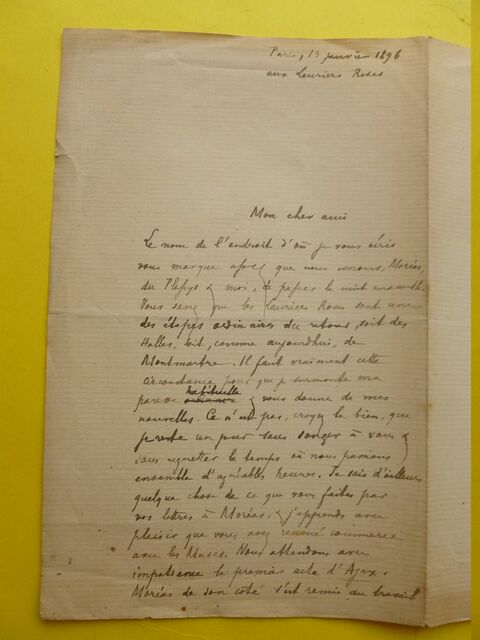 Paris, 13 janvier 1896
aux Lauriers Roses
Mon cher ami
Le nom de l'endroit d'où je vous écris
vous marque assez que nous venons, Moréas,
du Plessys & moi, de passer la nuit ensemble.
Vous savez que les Lauriers Roses sont une
des étapes ordinaires du retour, soit des
Halles, soit, comme aujourdhui, de
Montmartre. Il faut vraiment cette
circonstance pour que je surmonte ma
paresse habituelle & vous donne de mes
nouvelles. Ce n'est pas, croyez le bien, que
je reste un jour sans songer à vous &
sans regretter le temps où nous passions
ensemble d'agréables heures. Je sais d'ailleurs
quelque chose de ce que vous faites par
vos lettres à Moréas, & j'apprends avec
plaisir que vous avez renoué commerce
avec les Muses. Nous attendons avec
impatience le premier acte d'Ajax.
Moréas de son côté s'est remis au travail